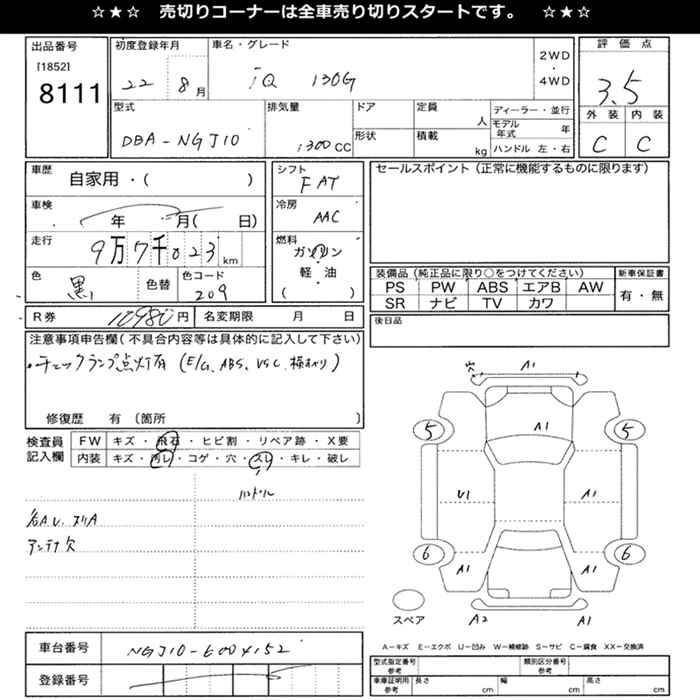 ☆★☆ 売切りコーナーは全車売り切りスタートです。 ☆★☆
出品番号
[1852]
8111
初度登録年月
22 8月
車名・グレード
iQ 130G
2WD
・
4WD
評価点
3.5
外装 内装
C C
型式
DBA-NGJ10
排気量
1300CC
ドア
形状
定員
人
積載
kg
ディーラー・並行
モデル年式 年
ハンドル 左・右
車歴
自家用・( )
車検
年 月( 日)
走行
9万7千023km
色
黒
色替
色コード
209
シフト
FAT
冷房
AAC
燃料
ガソリン
・
軽・油
( )
セールスポイント(正常に機能するものに限ります)
装備品(純正品に限り○をつけてください)
PS PW ABS エアB AW
SR ナビ TV カワ
新車保証書
有・無
後日品
R券 10980円 名変期限 月 日
注意事項申告欄(不具合内容等は具体的に記入して下さい)
・チェックランプ点灯有(E/G、ABS、VSC、横すべり)
修復歴 有(箇所 )
検査員
記入欄
FW キズ・飛石・ヒビ割・リペア跡・X要
内装 キズ・汚レ・コゲ・穴・スレ・キレ・破レ
ハンドル
各A.U.スリA
アンテナ欠
穴 A1
A1
5 5
U1 A1
6 6
A1 A1
スペア
A2 A1
A-キズ E-エクボ U-凹み W-補修跡 S-サビ C-腐食 XX-交換済
車台番号 NGJ10-6004152
登録番号
型式指定番号
参考
類別区分番号
参考
車庫証明用
参考
長さ cm 幅 cm 高さ cm